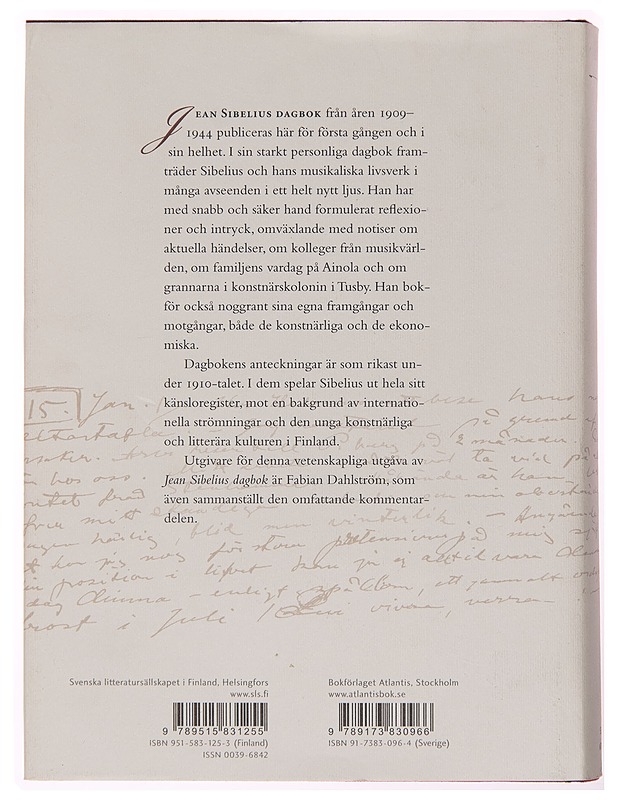 JEAN SIBELIUS DAGBOK från åren 1909–
1944 publiceras här för första gången och i
sin helhet. I sin starkt personliga dagbok fram-
träder Sibelius och hans musikaliska livsverk i
många avseenden i ett helt nytt ljus. Han har
med snabb och säker hand formulerat reflexio-
ner och intryck, omväxlande med notiser om
aktuella händelser, om kolleger från musikvärl-
den, om familjens vardag på Ainola och om
grannarna i konstnärskolonin i Tusby. Han bok-
för också noggrant sina egna framgångar och
motgångar, både de konstnärliga och de ekono-
miska.
Dagbokens anteckningar är som rikast un-
der 1910-talet. I dem spelar Sibelius ut hela sitt
känsloregister, mot en bakgrund av internatio-
nella strömningar och den unga konstnärliga
och litterära kulturen i Finland.
Utgivare för denna vetenskapliga utgåva av
Jean Sibelius dagbok är Fabian Dahlström, som
även sammanställt den omfattande kommentar-
delen.
15. Jan.
på grund
månader.
hos oss.
fria mitt
härlig, blid men vinterlik.
har jag nog för stora pretensioner på mig
position i lifvet kan ju ej alltid vara
dag – enligt spådom, ett gammalt
i Juli
Svenska litteratursällskapet i Finland, Helsingfors
www.sls.fi
9 789515 831255
ISBN 951-583-125-3 (Finland)
ISSN 0039-6842
Bokförlaget Atlantis, Stockholm
www.atlantisbok.se
9 789173 830966
ISBN 91-7383-096-4 (Sverige)